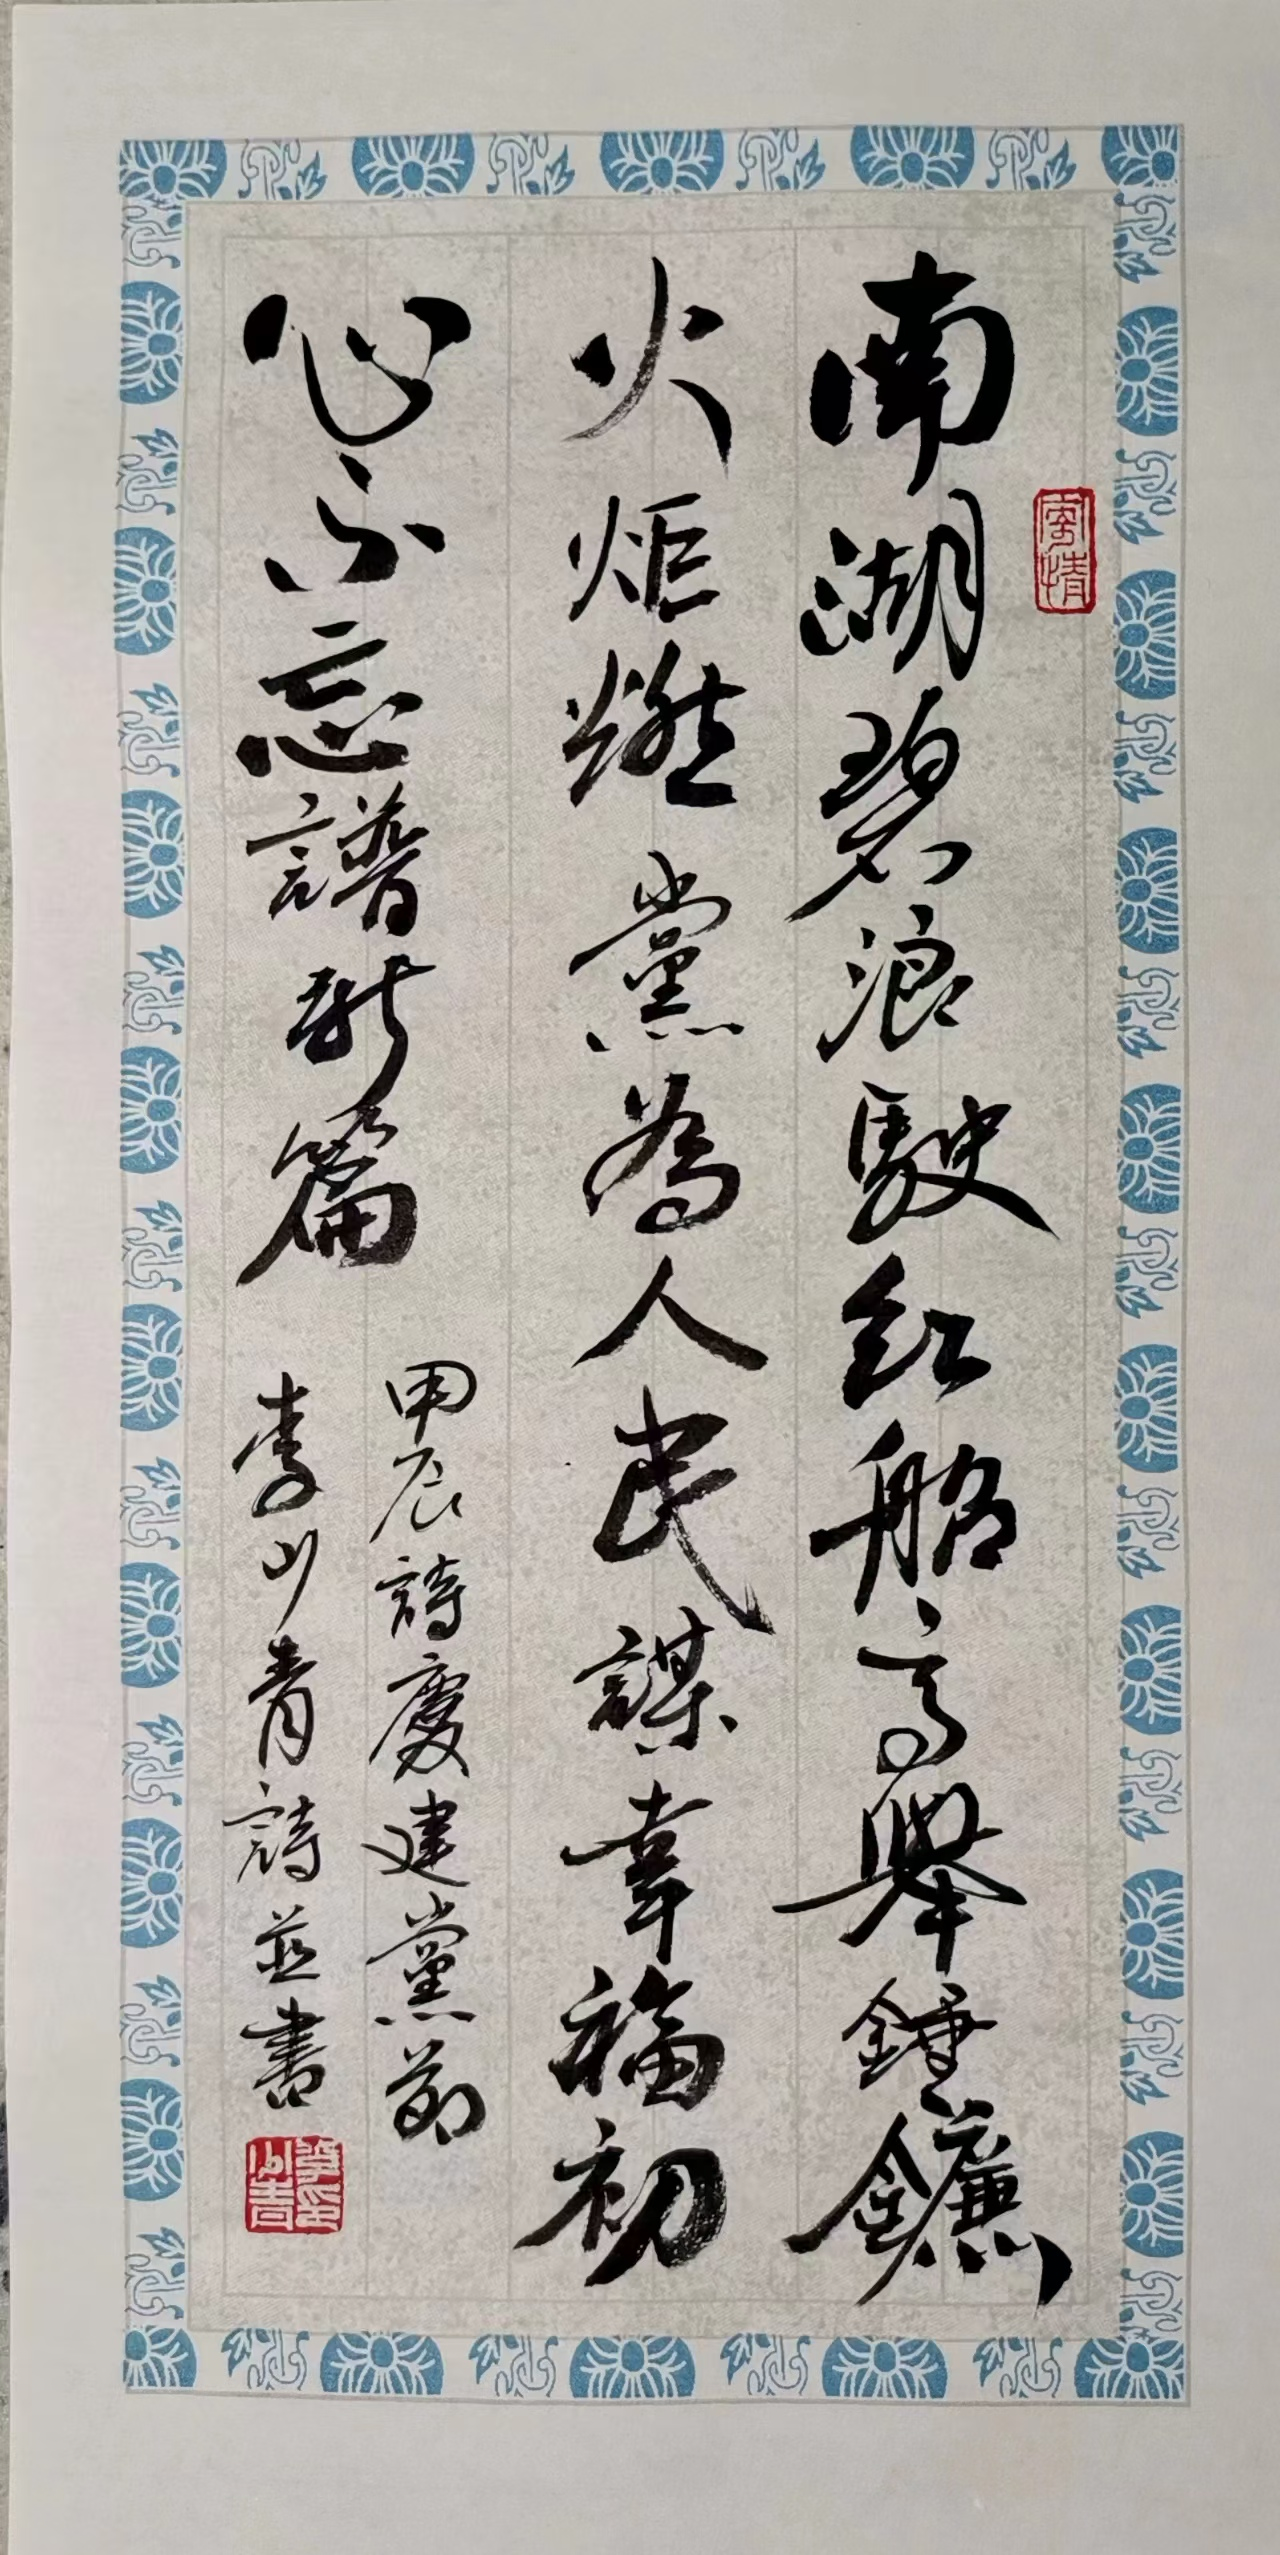 南湖碧浪駛红船高舉錘鐮
火炬燃黨為人民謀幸福初
心不忘譜新篇
甲辰詩慶建黨節
李少青詩並書
寄情